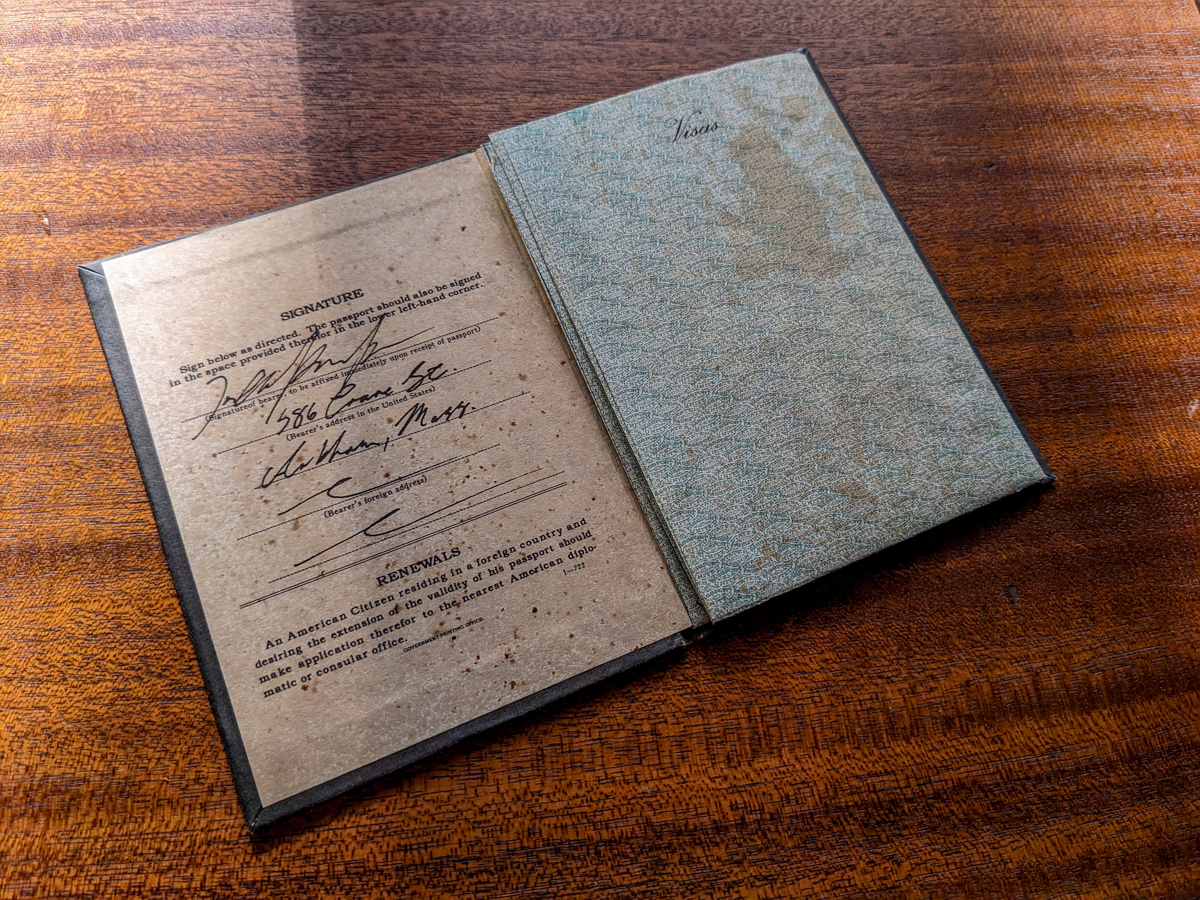 SIGNATURE
Sign below as directed. The passport should also be signed
in the space provided therefor in the lower left-hand corner.
(Signature of bearer to be affixed immediately upon receipt of passport)
586 Crane St.
(Bearer's address in the United States)
Arkham, Mass.
(Bearer's foreign address)
RENEWALS
An American Citizen residing in a foreign country and
desiring the extension of the validity of his passport should
make application therefor to the nearest American diplo-
matic or consular office.
1—722
GOVERNMENT PRINTING OFFICE.
Visas